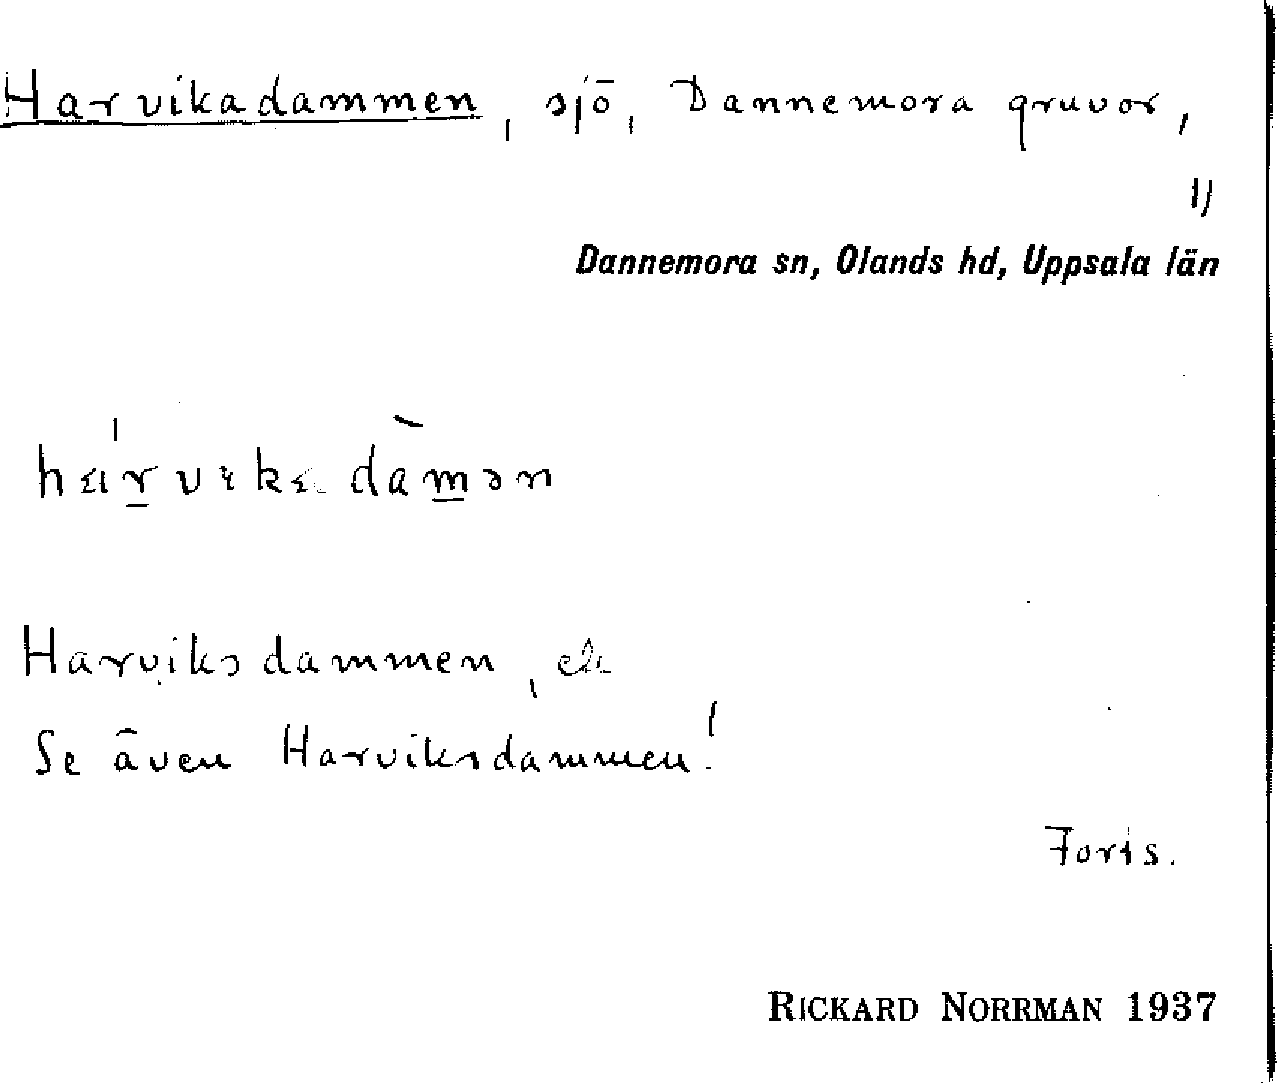 Harvikadammen, sjö, Dannemora gruvor,
1)
Dannemora sn, Olands hd, Uppsala län
Harviksdammen, ek
Se även Harviksdammen!
Forts.
RICKARD NORRMAN 1937